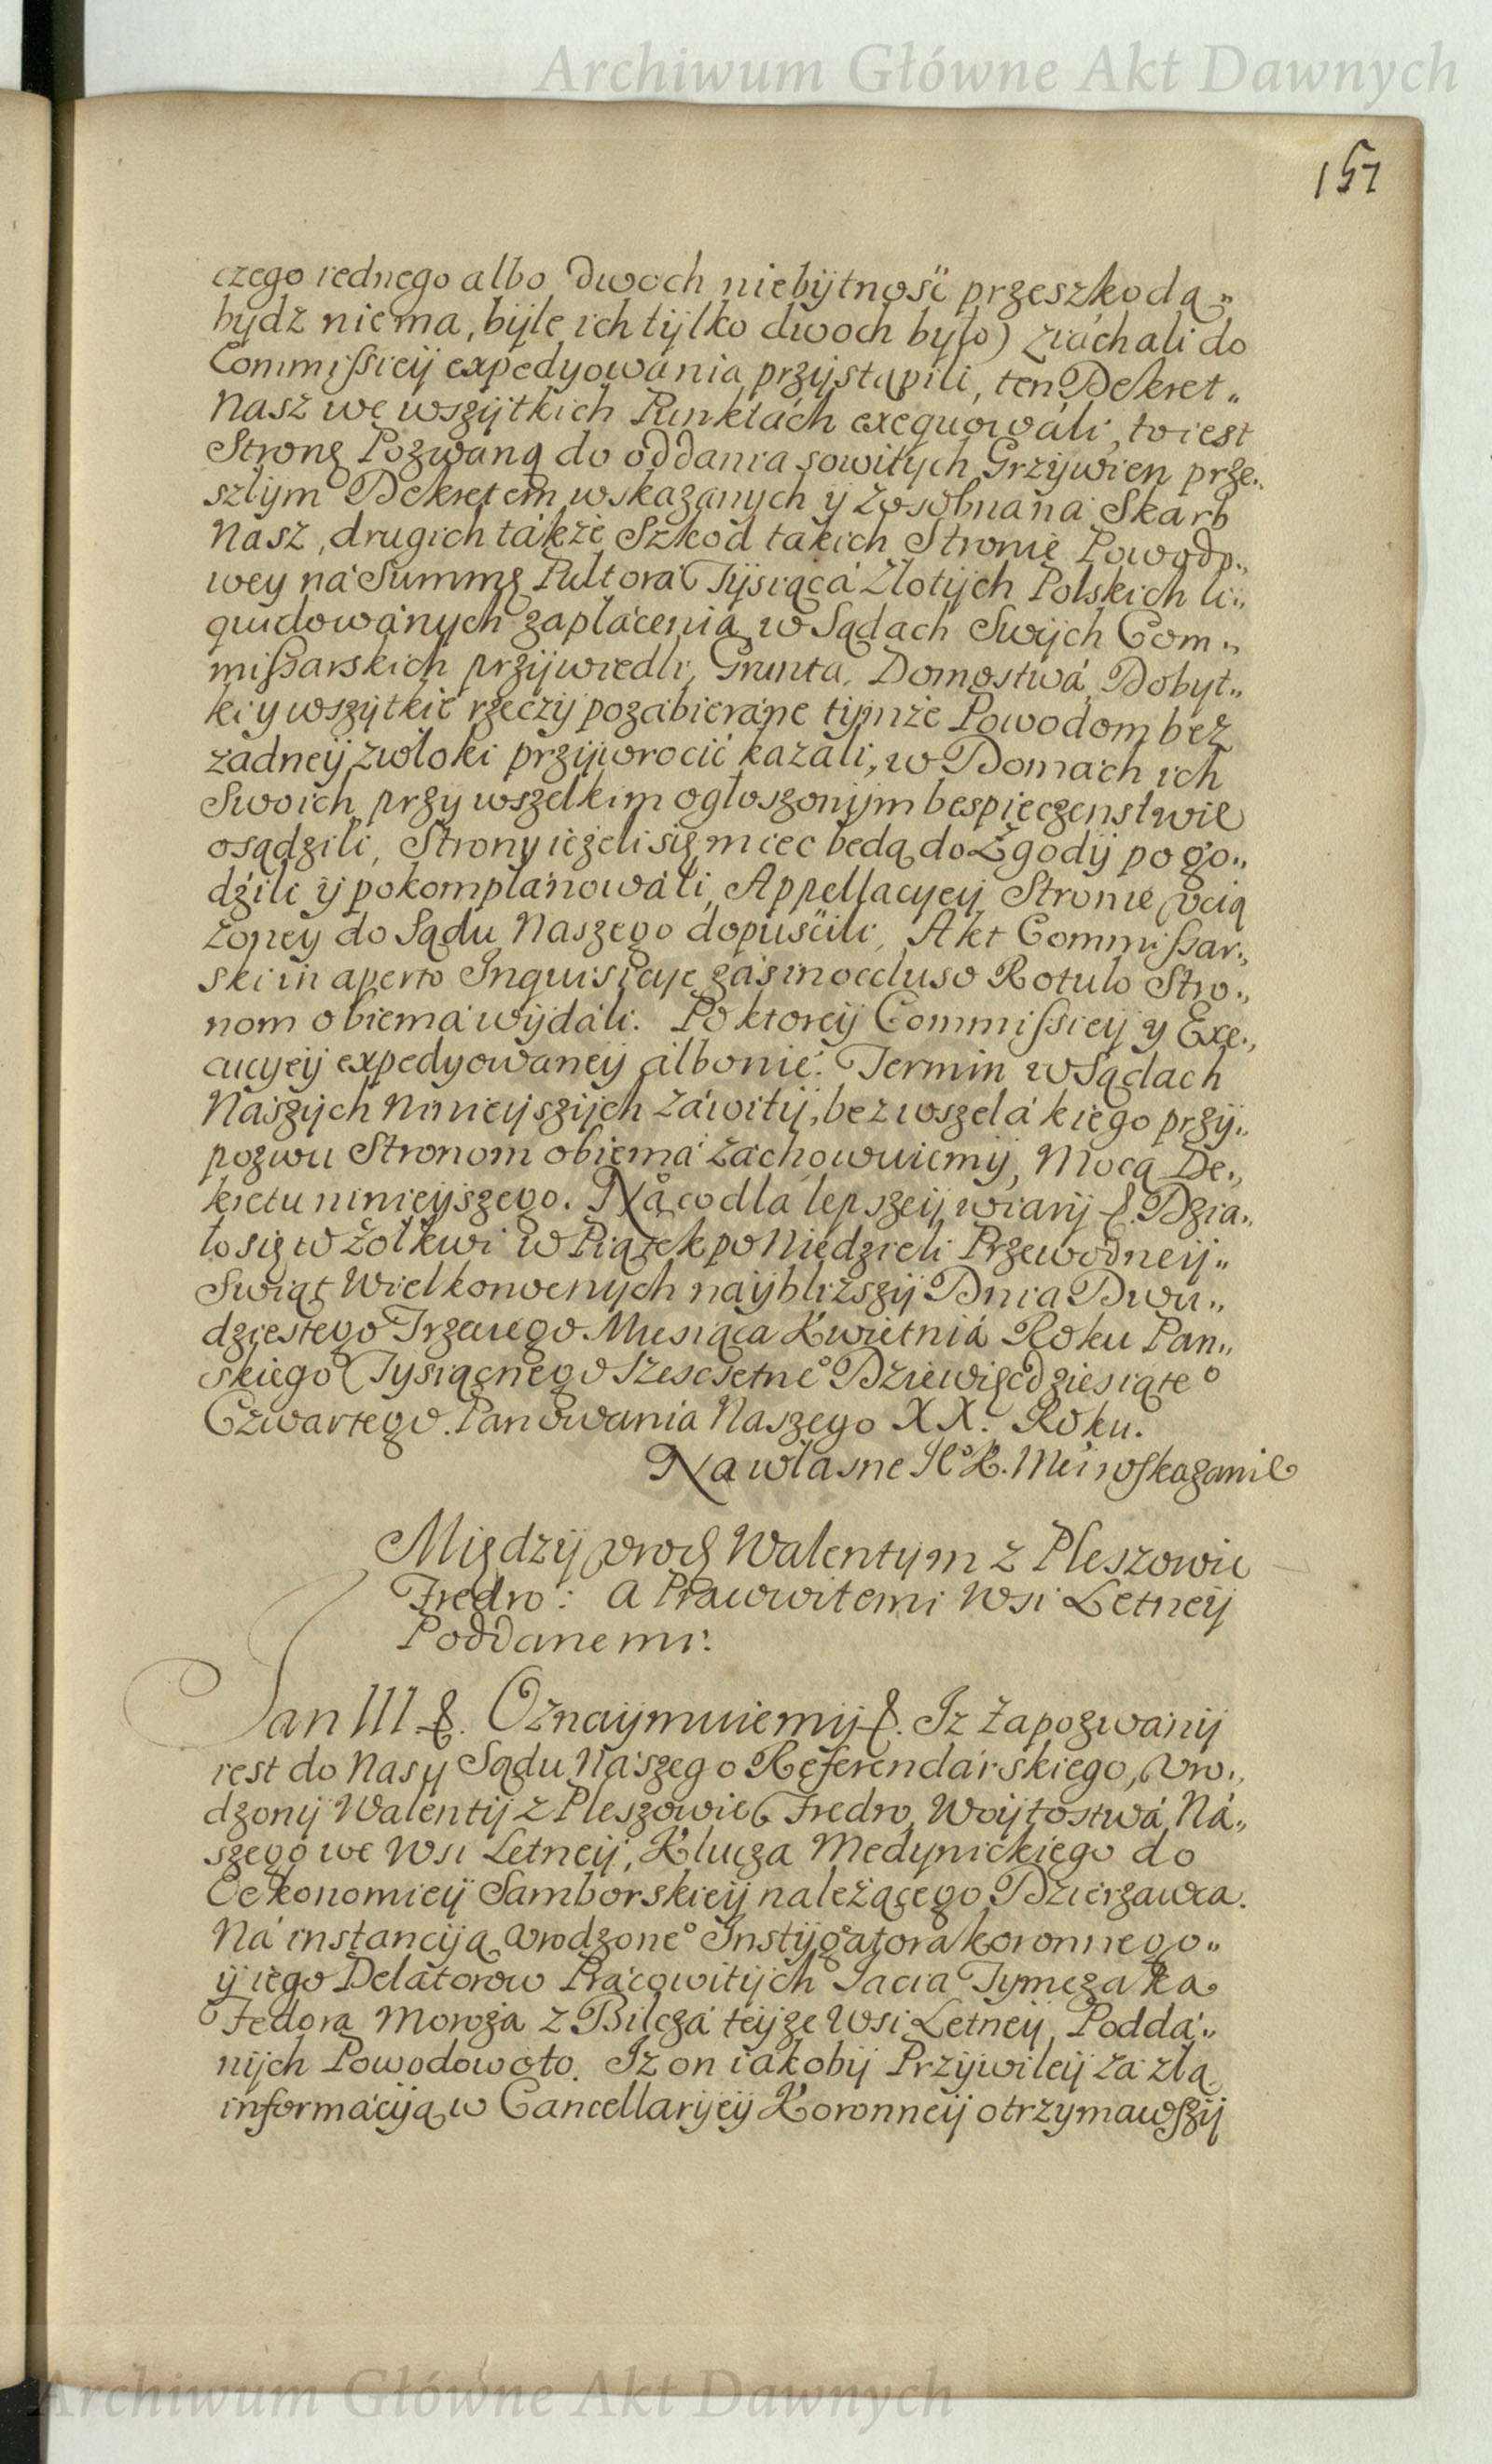 Archiwum Główne Akt Dawnych
157
czego iednego albo dwoch niebÿtnośći przeszkodą„
bydz niema, bÿle ich tÿlko dwoch było) ziáchali do
Commissieÿ expedyowánia przÿstąpili, ten Dekret„
Nasz we wszÿtkich Punktách exequowáli, to iest
Stronę Pozwaną do oddania sowitÿch Grzÿwien prze„
szłÿm Dekretem wskazanych ÿ zosobna na Skarb
Nasz, drugich tákże Szkod takich Stronie Powodo„
wey ná Summę Pułtorá Tÿsiącá Złotÿch Polskich li„
quidowánych zapłácenia w Sądach Swÿch Com„
missarskich przÿwiedli, Grunta, Domostwá, Dobyt„
ki y wszÿtkie rzeczÿ pozabieráne tÿmże Powodom bez
żadneÿ zwłoki przÿwrocić kazáli, w Domách ich
Swoich przÿ wszelkim ogłoszonÿm bespieczenstwie
osądzili, Strony ieżeli się miec będą do Zgodÿ pogo„
dźili ÿ pokomplánowáli, Appellacyeÿ Stronie vcią
żoney do Sądu Naszego dopuśćili, Akt Commissar„
ski in aperto Inquisicÿe záś in occluso Rotulo Stro„
nom obiemá wÿdáli. Po ktoreÿ Commissieÿ y Exe„
cucyeÿ expedyowaneÿ álbo nie: Termin w Sądach
Nászÿch Ninieÿszÿch záwitÿ, bez wszelákiego przÿ„
pozwu Stronom obiemá záchowuiemÿ, Mocą De„
kretu ninieÿszego. Ná co dla lepszeÿ wiarÿ &. Dzia„
ło się w Żołkwi w Piątek po Niedzieli Przewodneÿ„
Swiąt Wielkonocnych naÿbliższÿ Dnia Dwu„
dziestego Trzeciego Miesiąca Kwietniá Roku Pan„
skiego Tysiącnego Szescsetneº Dziewięcdziesiąteº
Czwartego. Panowania Naszego XX. Roku.
Na własne JºK. Mći wskazanie
Międzÿ vrodz Walentym z Pleszowic
Fredro: a Pracowitemi Wsi Letneÿ
Poddanemi:
Jan III &. Oznaÿmuiemÿ &. Iz zapozwanÿ
iest do Nas ÿ Sądu Nászego Referendárskiego, vro„
dzonÿ Walentÿ z Pleszowic Fredro, Woÿtostwá Ná„
szego we Wsi Letneÿ, Klucza Medynickiego do
Oekonomieÿ Samborskieÿ należącego Dzierzawca.
Ná instancÿą vrodzoneº Instÿgatora koronnego„
ÿ iego Delátorow Prácowitÿch Iacia Tymczaka
Fedora Moroza z Bilczá teÿze Wsi Letneÿ, Poddá„
nÿch Powodow oto. Iz on iakobÿ Przÿwileÿ zá złą
informácÿą w Cancellarÿeÿ Koronneÿ otrzymawszÿ
Archiwum Główne Akt Dawnych